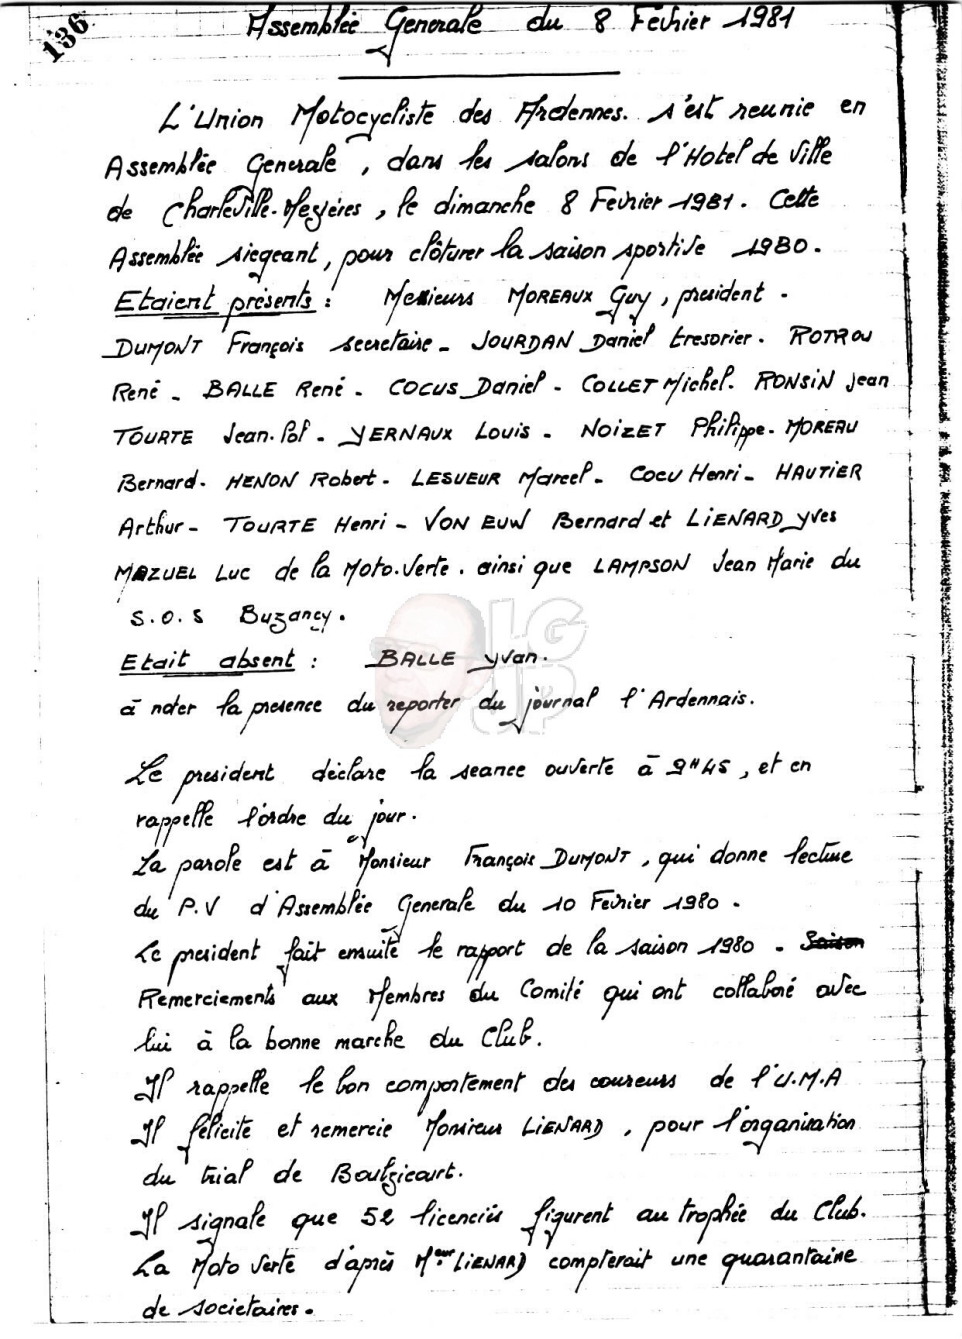 136
Assemblée Generale du 8 Février 1981
L'Union Motocycliste des Ardennes. s'est reunie en
Assemblée Generale, dans les salons de l'Hotel de Ville
de Charleville-Mezières, le dimanche 8 Fevrier 1981. Cette
Assemblée siegeant, pour clôturer la saison sportive 1980.
Etaient présents : Messieurs MOREAUX Guy, president -
DUMONT François secretaire - JOURDAN Daniel tresorier. ROTROU
René - BALLE René - COCUS Daniel - COLLET Michel. RONSIN Jean
TOURTE Jean-Pol - YERNAUX Louis - NOIZET Philippe - MOREAU
Bernard - HENON Robert - LESUEUR Marcel - COCU Henri - HAUTIER
Arthur - TOURTE Henri - VON EUW Bernard et LIENARD Yves
MAZUEL Luc de la Moto.Verte. ainsi que LAMPSON Jean Marie du
S.O.S Buzancy.
Etait absent : BALLE Yvan.
LG
JP
à noter la presence du reporter du journal l'Ardennais.
Le president déclare la seance ouverte à 9H45, et en
rappelle l'ordre du jour.
La parole est à Monsieur François DUMONT, qui donne lecture
du P.V d'Assemblée Generale du 10 Fevrier 1980.
Le president fait ensuite le rapport de la saison 1980. Saison
Remerciements aux Membres du Comité qui ont collaboré avec
lui à la bonne marche du Club.
Il rappelle le bon comportement des coureurs de l'U.M.A
Il félicite et remercie Monsieur LIENARD, pour l'organisation
du trial de Boulzicourt.
Il signale que 52 licenciés figurent au trophée du Club.
La Moto Verte d'après Meur LIENARD compterait une quarantaine
de societaires.